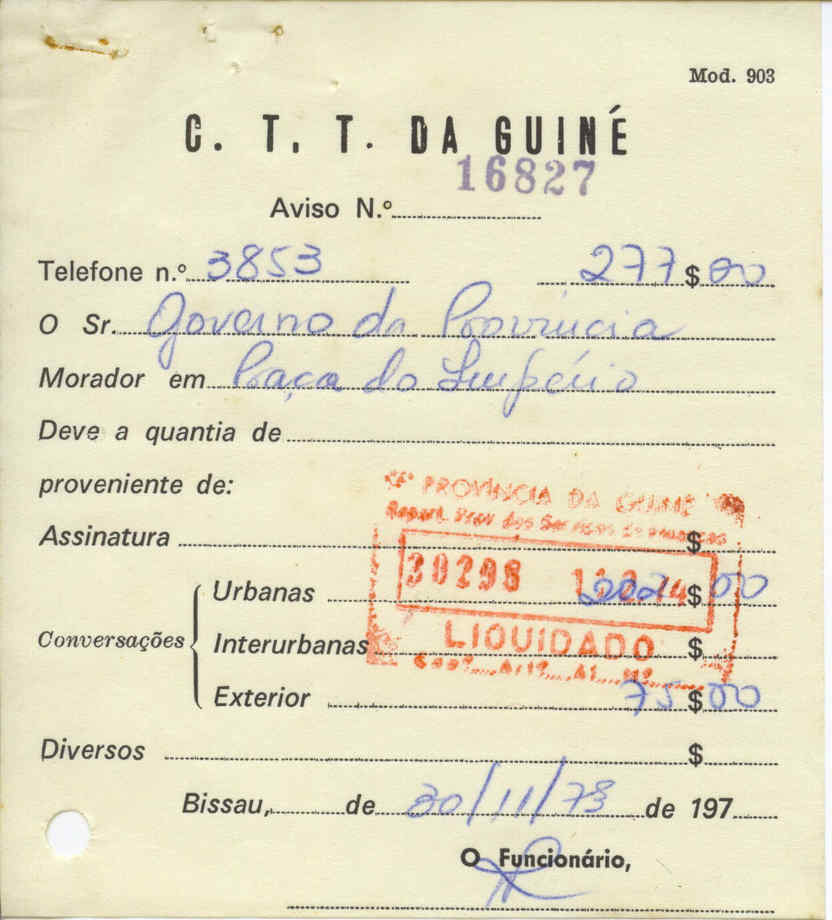 Mod. 903
C. T. T. DA GUINÉ
16827
Aviso N.º
Telefone n.º 3853 277$00
O Sr. Governo da Província
Morador em Praça do Império
Deve a quantia de
proveniente de:
PROVÍNCIA DA GUINÉ
Repart. Prov dos Serviços de
Assinatura $
30298
Conversações
Urbanas 202$00
LIQUIDADO
Interurbanas $
Exterior 75$00
Diversos $
Bissau, de 30/11/73 de 197
O Funcionário,